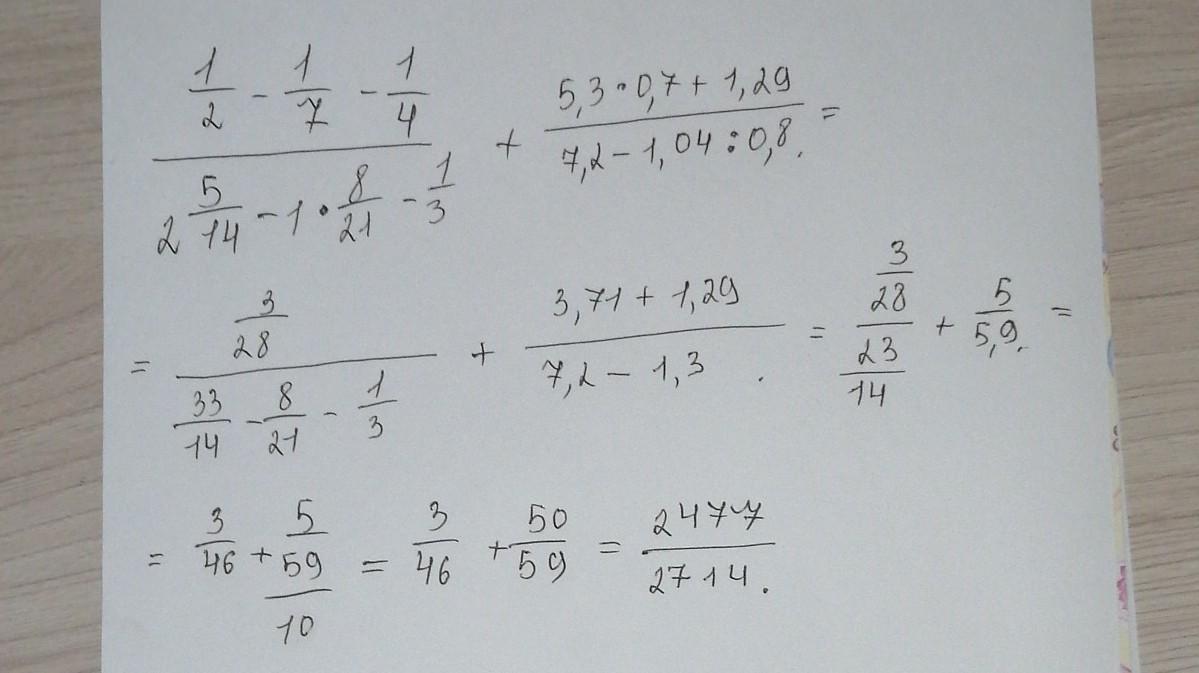 1/2 - 1/7 - 1/4 / 2 5/14 - 1 · 8/21 - 1/3 + 5,3 · 0,7 + 1,29 / 7,2 - 1,04 : 0,8. =
= 3/28 / 33/14 - 8/21 - 1/3 + 3,71 + 1,29 / 7,2 - 1,3 . = 3/28 / 23/14 + 5/5,9. =
= 3/46 + 5/59/10 = 3/46 + 50/59 = 2477/2714.